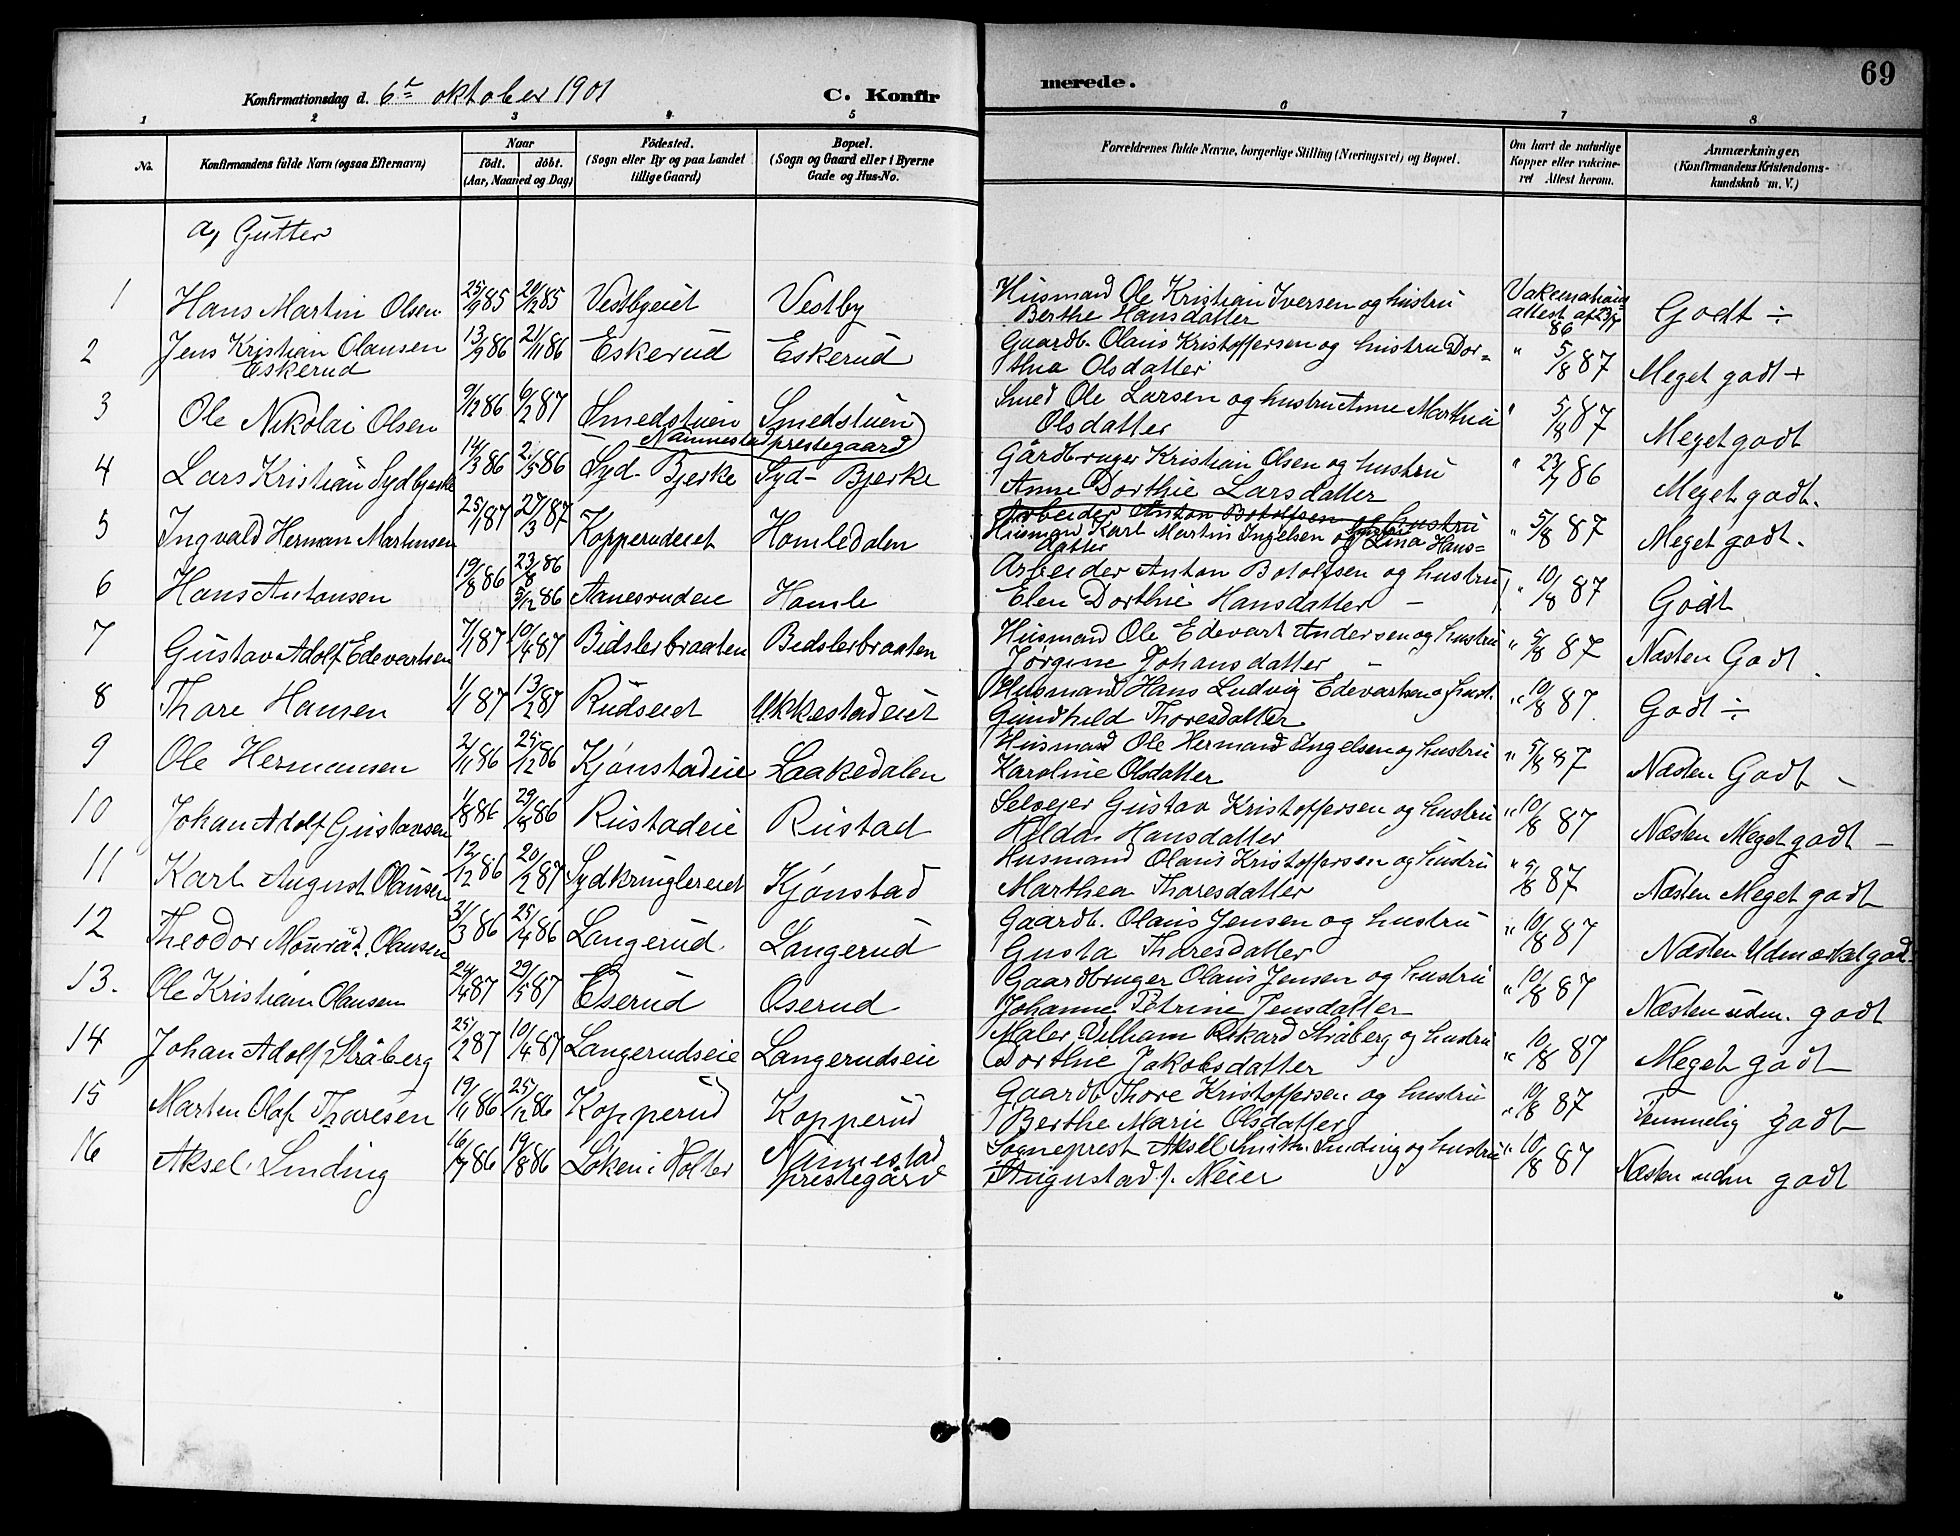 69
Konfirmationsdag d. 6te oktober 1901 C. Konfirmerede.
1 2 3 4 5 6 7 8
No. Konfirmandens fulde Navn (ogsaa Efternavn) Naar født. døbt. (Aar, Maaned og Dag) Fødested. (Sogn eller By og paa Landet tillige Gaard) Bopæl. (Sogn og Gaard eller i Byerne Gade og Hus-No. Forældrenes fulde Navne, borgerlige Stilling (Næringsvei) og Bopæl. Om havt de naturlige Kopper eller vakcineret Attest herom. Anmærkninger, (Konfirmandens Kristendomskundskab m. V.)
a, Gutter
1 Hans Martin Olsen 25/9 85 20/12 85 Vestbyeiet Vestby Husmand Ole Kristian Iversen og hustru Berthe Hansdatter Vakcinations attest af 23/7 86 Godt ÷
2 Jens Kristian Olausen Eskerud 13/9 86 21/11 86 Eskerud Eskerud Gaardb. Olaus Kristoffersen og hustru Dorthea Olsdatter " 5/8 87 Meget godt +
3 Ole Nikolai Olsen 9/12 86 6/2 87 Smedstuen Smedstuen Nannestad prestegaard Smed Ole Larsen og hustru Anne Marthea Olsdatter " 5/8 87 Meget godt
4 Lars Kristian Sydbjerke 14/3 86 2/5 86 Syd-Bjerke Syd-Bjerke Gårdbruger Kristian Olsen og hustru Anne Dorthie Larsdatter " 23/7 86 Meget godt.
Arbeider Anton Botolfsen og hustru
5 Ingvald Herman Martinsen 25/1 87 27/3 87 Kopperudeiet Homledalen Husmand Karl Martin Ingelsen og hustru Lina Hansdatter " 5/8 87 Meget godt.
6 Hans Antonsen 19/8 86 23/8 86 5/12 86 Aanesrudeie Homle Arbeider Anton Botolfsen og hustru Elen Dorthie Hansdatter – " 10/8 87 Godt
7 Gustav Adolf Edevartsen 7/1 87 10/4 87 Bidslerbraaten Bedslerbraaten Husmand Ole Edevart Andersen og hustru Jørgine Johansdatter – " 5/8 87 Næsten Godt
8 Thore Hansen 1/1 87 13/2 87 Rudseiet Ukkestadeiet Husmand Hans Ludvig Edevartsen og hust. Gundhild Thoresdatter " 10/8 87 Godt ÷
9 Ole Hermansen 2/11 86 25/12 86 Kjønstadeie Laakedalen Husmand Ole Hermand Ingelsen og hustru Karoline Olsdatter " 5/8 87 Næsten Godt –
10 Johan Adolf Gustavsen 1/8 86 29/8 86 Rustadeie Rustad Selveier Gustav Kristoffersen og hustru Helda Hansdatter " 10/8 87 Næsten Meget godt –
11 Karl August Olausen 12/12 86 20/2 87 Sydkringlereiet Kjønstad Husmand Olaus Kristoffersen og hustru Marthea Thoresdatter " 5/8 87 Næsten Meget godt
12 Theodor Olausen 31/3 86 25/4 86 Langerud Langerud Gaardb. Olaus Jensen og hustru Gusta Thoresdatter " 10/8 87 Næsten Udmærket god.
13. Ole Kristian Olausen 24/4 87 29/5 87 Eserud Oserud Gaardbruger Olaus Jensen og hustru Johanne Petrine Jensdatter " 10/8 87 Næsten udm. godt
14 Johan Adolf Stråberg 25/2 87 10/4 87 Langerudseie Langerudseie Maler Vilham Rikard Stråberg og hustru Dorthie Jakobsdatter " 10/8 87 Meget godt
15 Marten Olaf Thoresen 19/11 86 25/12 86 Kopperud Kopperud Gaardb Thore Kristoffersen og hustru Berthe Marie Olsdatter " 10/8 87 Temmelig godt
16 Aksel Sinding 16/7 86 19/8 86 Løken i Holter Nannestad prestegård Sogneprest Aksel Smith Sinding og hustru Augusta d f. Meier " 10/8 87 Næsten udm godt